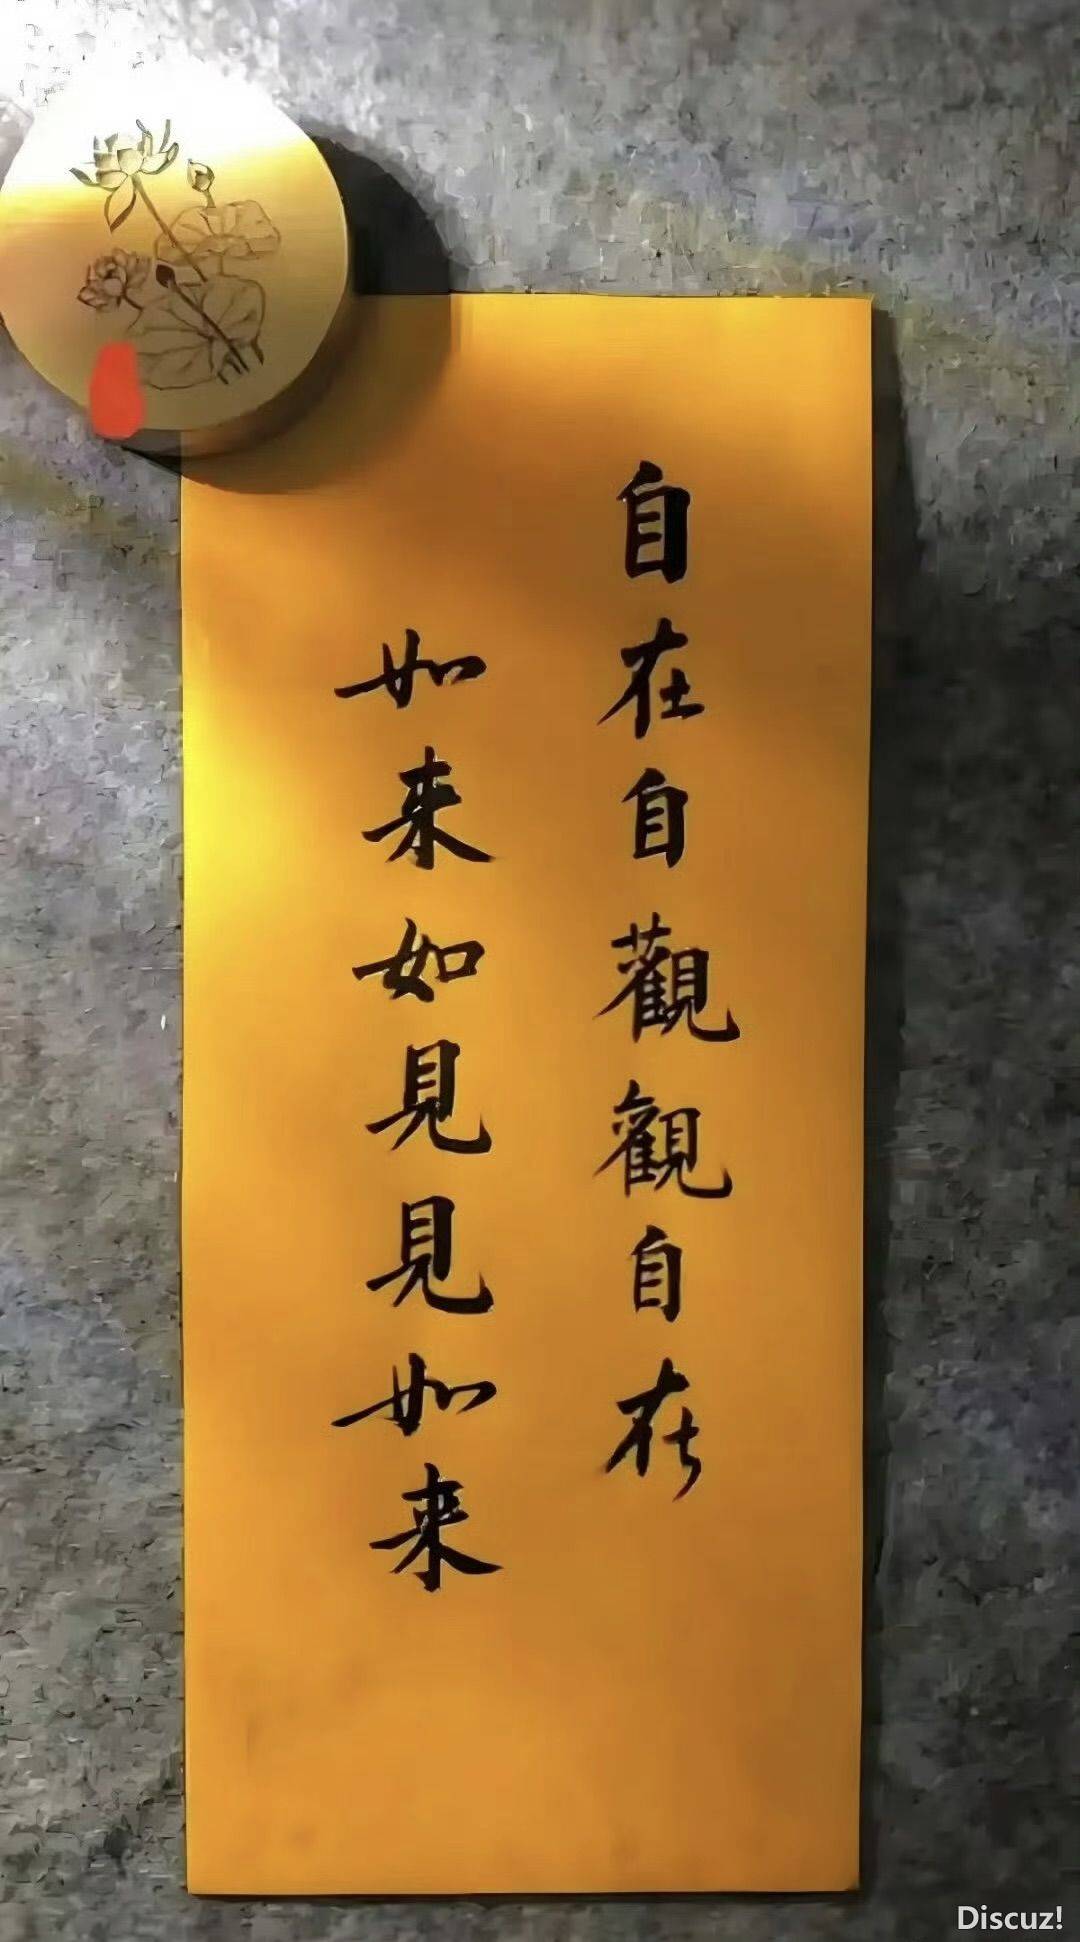 自在自觀觀自在
如来如見見如来
Discuz!